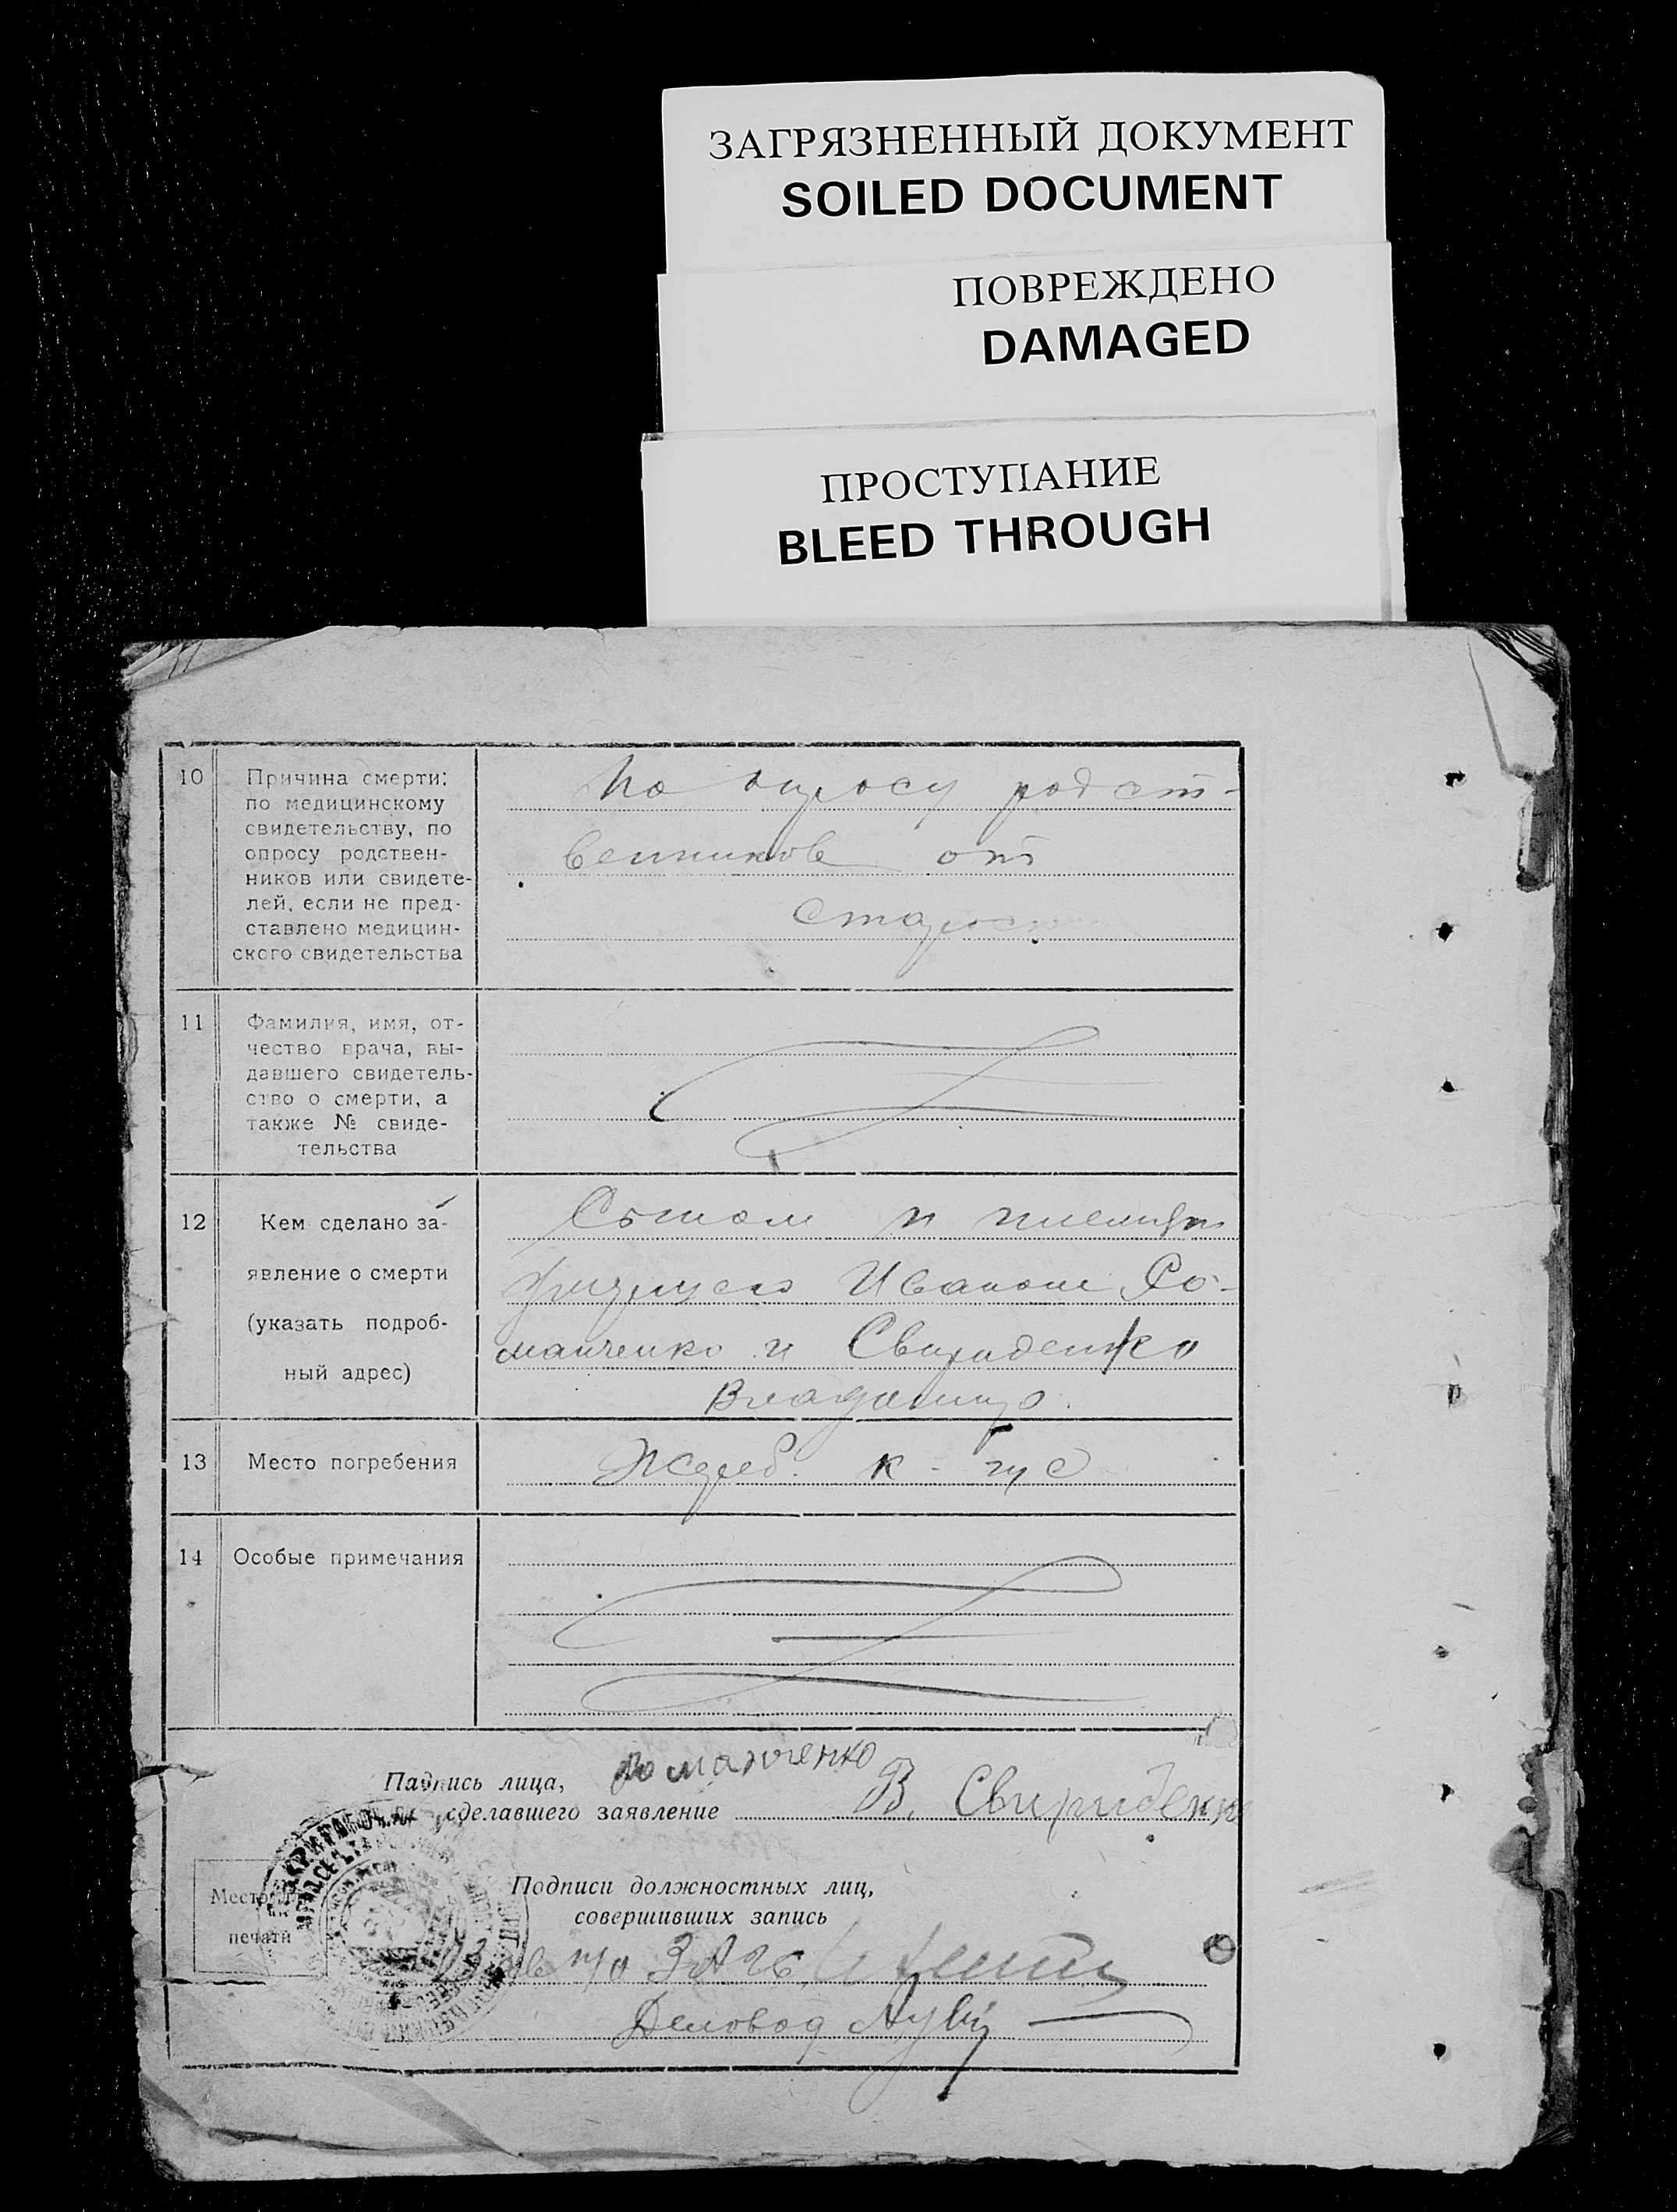 ЗАГРЯЗНЕННЫЙ ДОКУМЕНТ
SOILED DOCUMENT
ПОВРЕЖДЕНО
DAMAGED
ПРОСТУПАНИЕ
BLEED THROUGH
10
Причина смерти:
по медицинскому
свидетельству, по
опросу родствен-
ников или свидете-
лей, если не пред-
ставлено медицин-
ского свидетельства
По опросу родст-
венников от
старост
11
Фамилия, имя, от-
чество врача, вы-
давшего свидетель-
ство о смерти, а
также № свиде-
тельства
12
Кем сделано за-
явление о смерти
(указать подроб-
ный адрес)
Сыном и
Иваном Ро-
манченко и Свириденко
Владимир
13
Место погребения
к-
14
Особые примечания
Романченко
Падпись лица,
сделавшего заявление
В. Свириденко
Место для
печати
Подписи должностных лиц,
совершивших запись
Зав п/о ЗАГС
Деловод